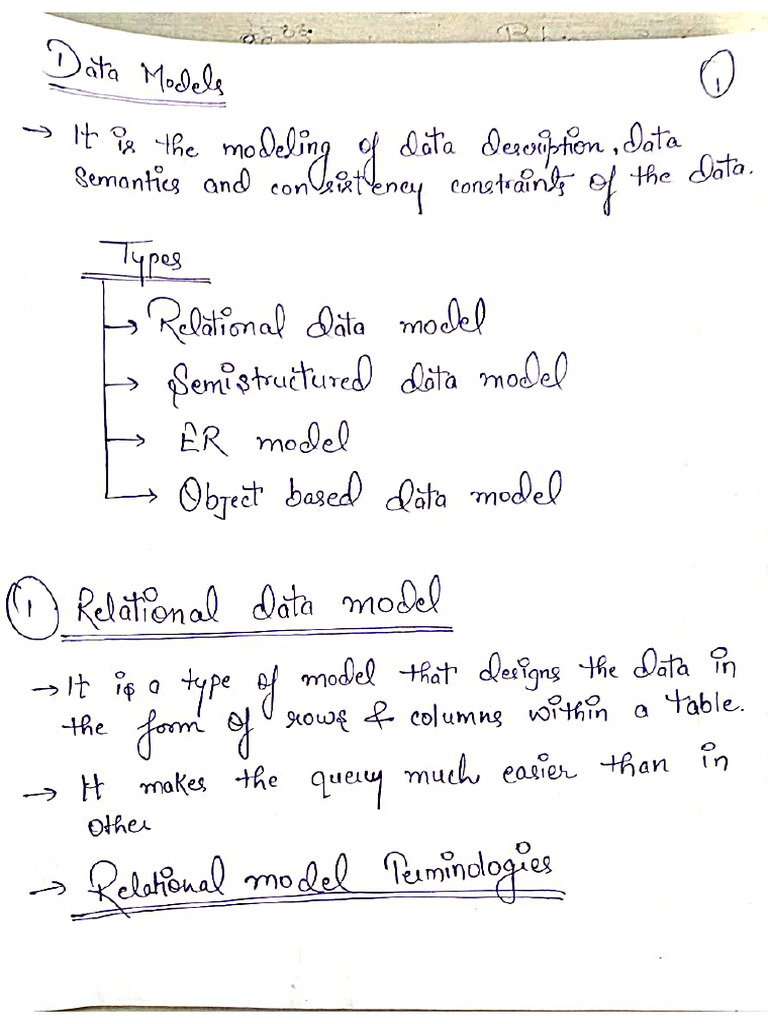 Data Models
1
→ It is the modeling of data description, data
semantics and consistency constraints of the data.
Types
→ Relational data model
→ Semistructured data model
→ ER model
→ Object based data model
1 Relational data model
→ It is a type of model that designs the data in
the form of rows & columns within a table.
→ It makes the query much easier than in
other
→ Relational model Terminologies